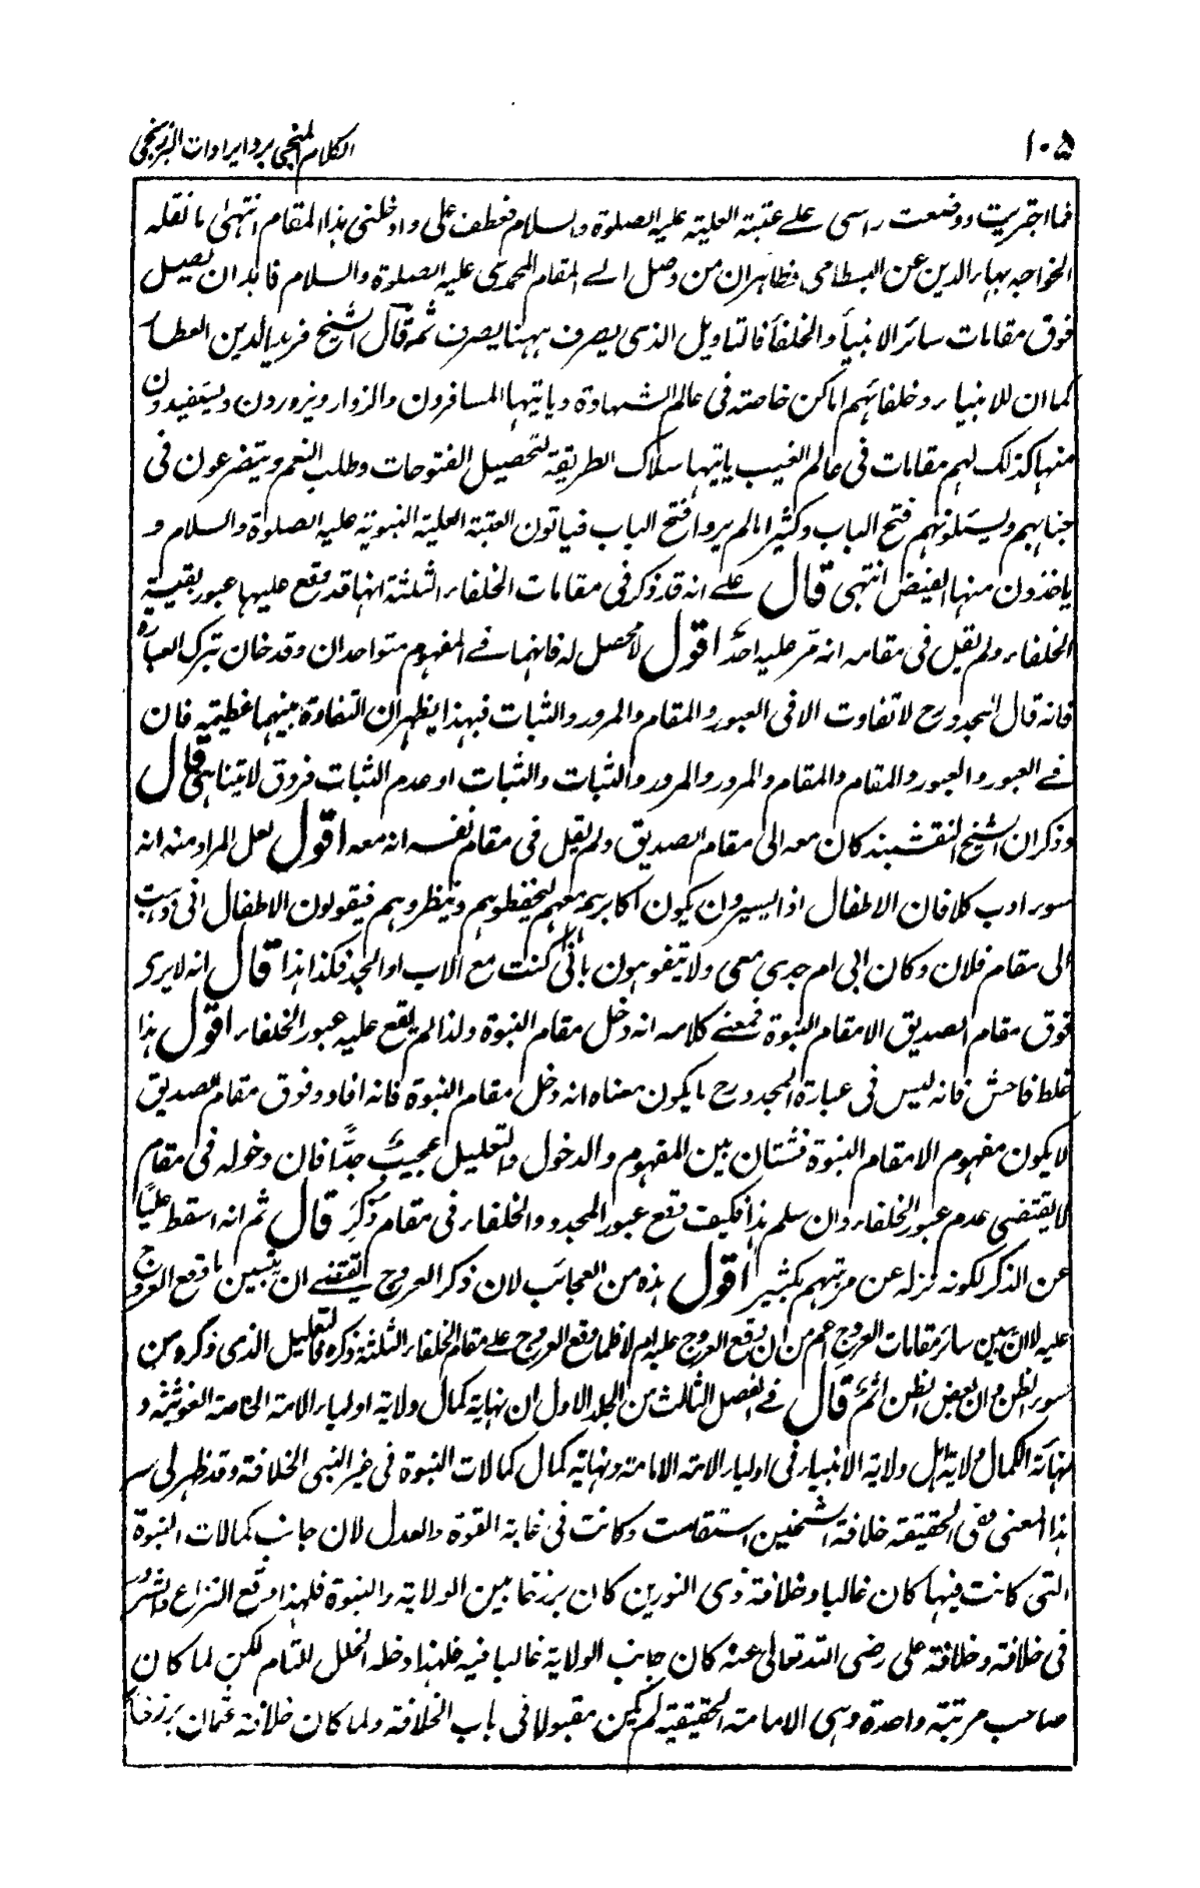 ١٠٥
الكلام المنجي برد ايرادات البرزنجي
فما اجتريت ووضعت راسى على عتبته العلية عليه الصلوة والسلام فعطف على وادخلنى هذا المقام انتهىٰ ما نقله
الخواجه بهاء الدين عن البسطامى فظاهر ان من وصل الى المقام المحمدى عليه الصلوة والسلام فلابد ان يصل
فوق مقامات سائر الانبياء والخلفاء فالتاويل الذى يصرف ههنا يصرف ثمه قال الشيخ فريد الدين العطار
كما ان للانبياء وخلفائهم اماكن خاصته فى عالم الشهادة وياتيها المسافرون والزوار ويزورون ويستفيدون
منها كذلك لهم مقامات فى عالم الغيب ياتيها سلاك الطريقة لتحصيل الفتوحات وطلب النعم ويتضرعون فى
جنابهم ويسئلونهم فتح الباب وكثيرا ما لم يروا فتح الباب فياتون العتبة العلية النبوية عليه الصلوة والسلام و
ياخذون منها الفيض انتهى قال على انه قد ذكر فى مقامات الخلفاء الثلثة انها قد وقع عليها عبور بقية
الخلفاء ولم يقل فى مقامه انه مر عليه احد اقول لا محصل له فانهما فى المفهوم متواحدان وقد خان بترك العبارة
فانه قال المجدد رح لا تفاوت الا فى العبور والمقام والمرور والثبات فبهذا يظهر ان التفاوة بينهما عظيمة فان
فى العبور والعبور والمقام والمقام والمرور والمرور والثبات والثبات او عدم الثبات فروق لا يتناهى قال
وذكر ان الشيخ النقشبند كان معه الى مقام الصديق ولم يقل فى مقام نفسه انه معه اقول لعل المراد منه انه
سوء ادب كلا فان الاطفال اذا يسيرون يكون اكابرهم معهم ليحفظوهم وينظروهم فيقولون الاطفال انى ذهبت
الى مقام فلان وكان ابى ام جدى معى ولا يتفوهون بانى كنت مع الاب او الجد فكذا هذا قال انه لا يرى
فوق مقام الصديق الا مقام النبوة فمعنى كلامه انه دخل مقام النبوة ولذا لم يقع عليه عبور الخلفاء اقول هذا
غلط فاحش فانه ليس فى عبارة المجدد رح ما يكون معناه انه دخل مقام النبوة فانه افاد وفوق مقام الصديق
لا يكون مفهوم الا مقام النبوة فشتان بين المفهوم والدخول والتعليل عجيبٌ جدًّا فان دخوله فى مقام
لا يقتضى عدم عبور الخلفاء وان سلم هذا فكيف وقع عبور المجدد والخلفاء فى مقام ذُكِرَ قال ثم انه اسقط عليًّا
عن الذكر لكونه نزله عن مرتبهم بكثير اقول هذه من العجائب لان ذكر العروج يقتضى ان يتبين ما وقع العروج
عليه لا ان يبين سائر مقامات العروج اعم من ان وقع العروج عليه ام لا فلما وقع العروج على مقام الخلفاء الثلثة ذكره والتعليل الذى ذكره من
سوء الظن وان بعض الظن اثم قال فى الفصل الثالث من الجلد الاول ان نهاية كمال ولاية اولياء الامة الخاصة الغوثية و
نهاية الكمال ولاية اهل ولاية الانبياء فى اولياء الامة الامامة ونهاية كمال كمالات النبوة فى غير النبى الخلافة وقد ظهر لى سر
هذا المعنى ففى الحقيقة خلافة الشيخين استقامت وكانت فى غاية القوة والعدل لان جانب كمالات النبوة
التى كانت فيها كان غالبا وخلافة ذى النورين كان برزخا بين الولاية والنبوة فلهذا وقع النزاع والشر
فى خلافة وخلافة على رضى الله تعالى عنه كان جانب الولاية غالبا فيه فلهذا دخله الخلل للتام لكن لما كان
صاحب مرتبة واحدة وهى الامامة الحقيقية لم يكن مقبولا فى باب الخلافة ولما كان خلافة عثمان برزخا